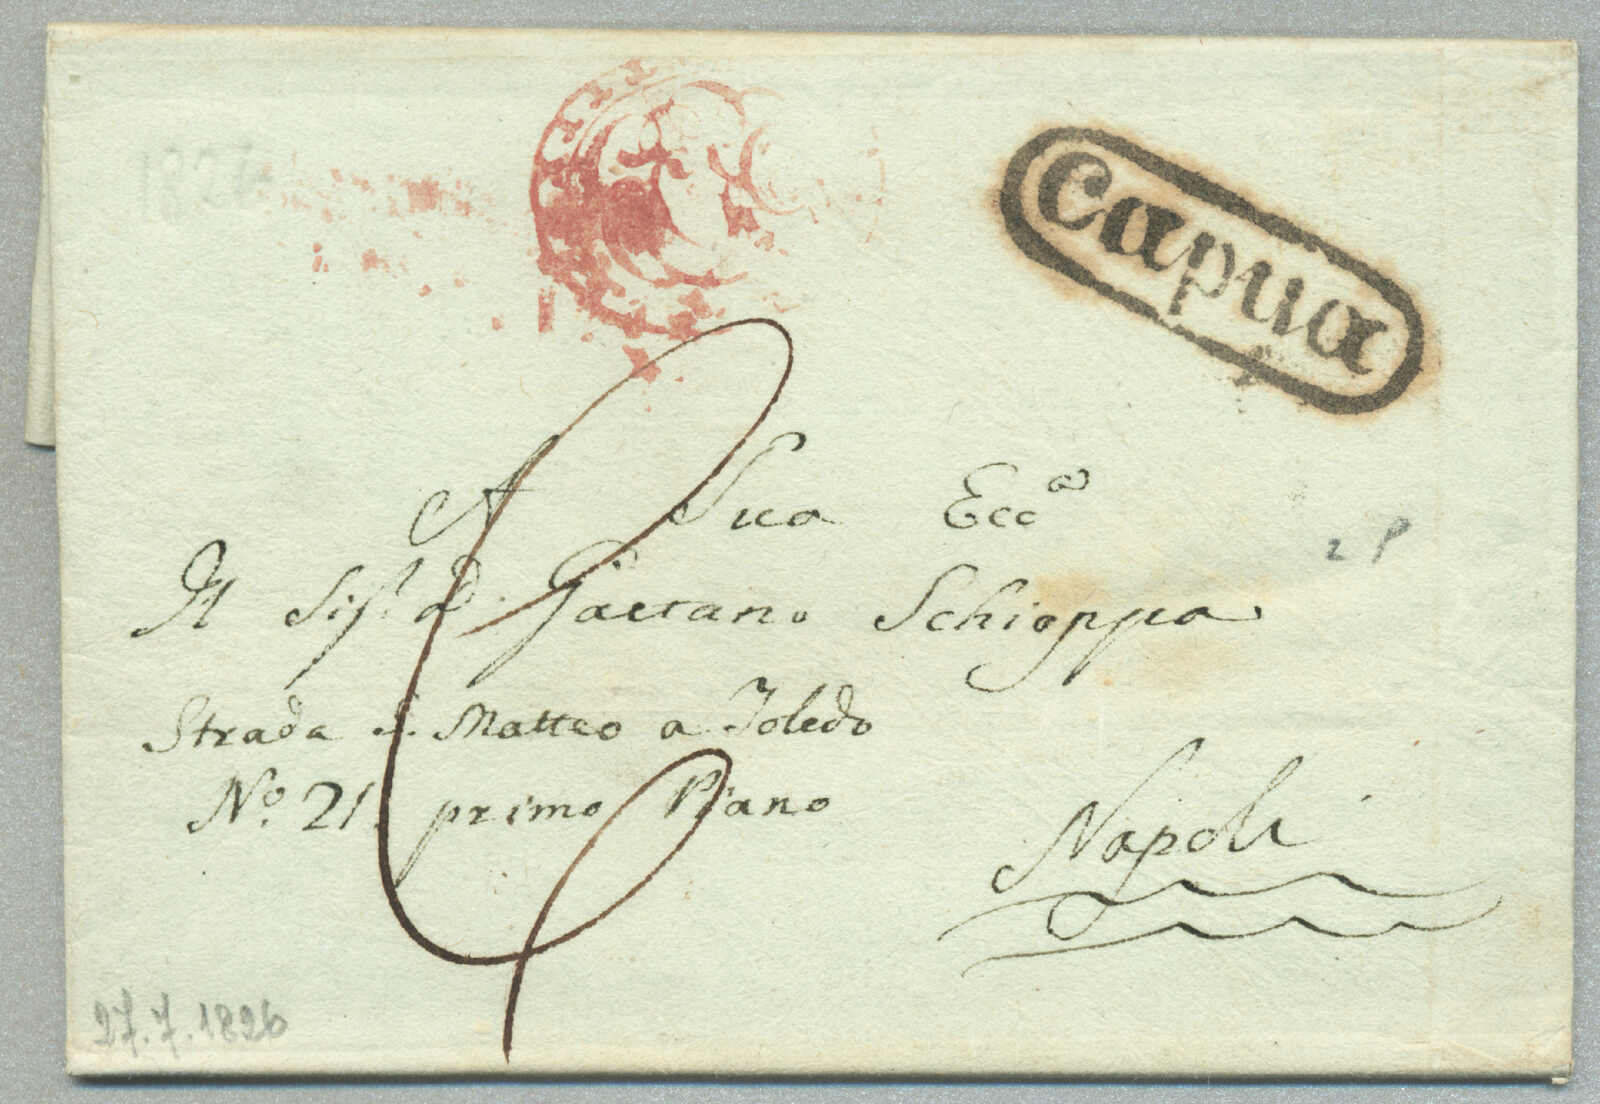 1826
Capua
A Sua Ecc.a
Il Sig.r D. Gaetano Schioppa
2 P
Strada S. Matteo a Toledo
No. 21. primo Piano
Napoli
27.7.1826